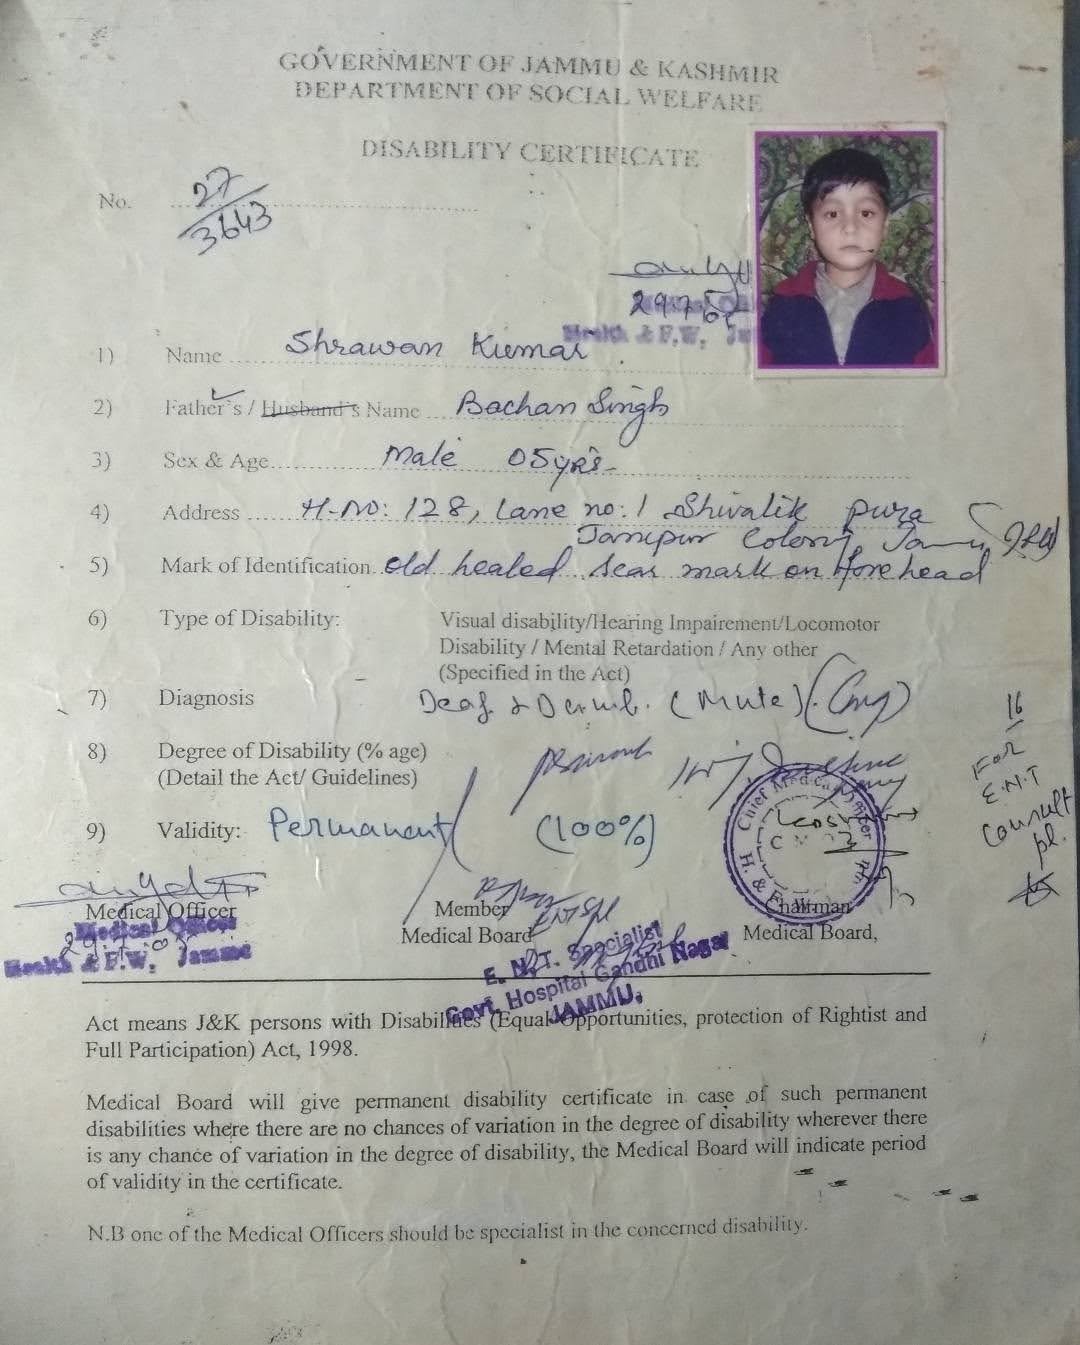 GOVERNMENT OF JAMMU & KASHMIR
DEPARTMENT OF SOCIAL WELFARE
DISABILITY CERTIFICATE
No. 27/3643
Health & F.W.
1) Name Shrawan Kumar
2) Father's / Husband's Name Bachan Singh
3) Sex & Age Male 05yrs
4) Address H-No: 128, Lane no: 1 Shivalik pura
Janipur Colony,
5) Mark of Identification. old healed scar mark on forehead
6) Type of Disability: Visual disability/Hearing Impairement/Locomotor
Disability / Mental Retardation / Any other
(Specified in the Act)
7) Diagnosis Deaf & Dumb. (Mute)
8) Degree of Disability (% age)
(Detail the Act/ Guidelines)
16
For
E.N.T
Consult
pl.
9) Validity: Permanent (100%)
Chief Medical
H. &
Medical Officer
Medical Officer
Health & F.W. Jammu
Member
Medical Board
E.N.T. Specialist
Govt. Hospital Gandhi Nagar
JAMMU.
Chairman
Medical Board,
Act means J&K persons with Disabilities (Equal Opportunities, protection of Rightist and
Full Participation) Act, 1998.
Medical Board will give permanent disability certificate in case of such permanent
disabilities where there are no chances of variation in the degree of disability wherever there
is any chance of variation in the degree of disability, the Medical Board will indicate period
of validity in the certificate.
N.B one of the Medical Officers should be specialist in the concerned disability.